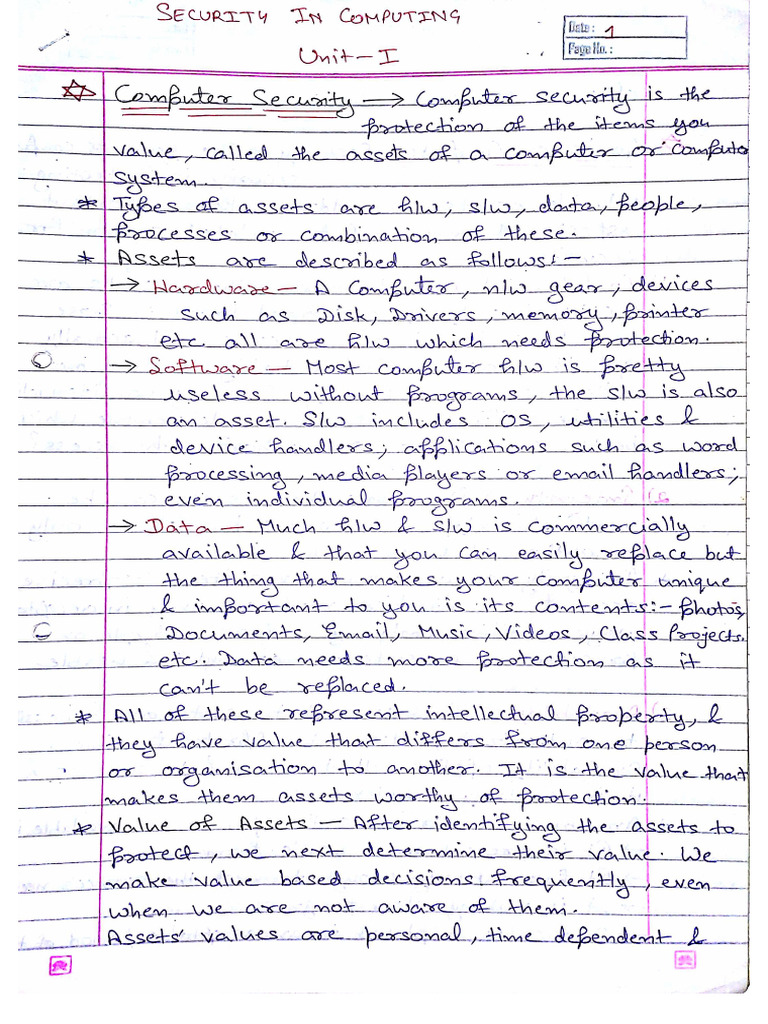 SECURITY IN COMPUTING
Date: 1
Unit-I
Page No.:
Computer Security → Computer security is the
protection of the items you
value, called the assets of a computer or computer
system.
* Types of assets are h/w, s/w, data, people,
processes or combination of these.
* Assets are described as follows:-
→ Hardware - A Computer, n/w gear, devices
such as Disk, Drivers, memory, printer
etc all are h/w which needs protection.
→ Software - Most computer h/w is pretty
useless without programs, the s/w is also
an asset. S/w includes OS, utilities &
device handlers; applications such as word
processing, media players or email handlers;
even individual programs.
→ Data - Much h/w & s/w is commercially
available & that you can easily replace but
the thing that makes your computer unique
& important to you is its contents:- photos,
Documents, Email, Music, Videos, Class Projects.
etc. Data needs more protection as it
can't be replaced.
* All of these represent intellectual property, &
they have value that differs from one person
or organisation to another. It is the value that
makes them assets worthy of protection.
* Value of Assets - After identifying the assets to
protect, we next determine their value. We
make value based decisions frequently, even
when we are not aware of them.
Assets' values are personal, time dependent &